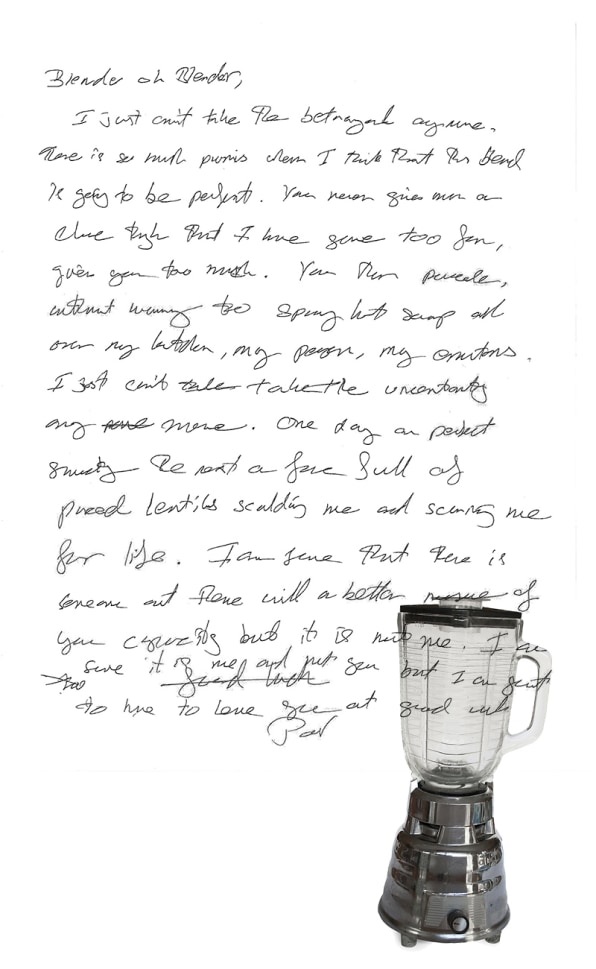 Blender oh Blender,
I just can't take the betrayal anymore.
There is so much promis when I think that the blend
is going to be perfect. You never give me a
clue that I have gone too far,
given you too much. You then
without warning to spray hot soup all
over my kitchen, my person, my emotions.
I just can't take the uncertainty
any more. One day a perfect
the next a face full of
pureed lentils scalding me and scarring me
for life. I am sure that there is
someone out there with a better of
your capacity but it is not me. I am
sure it is me and not you but I am
to have to leave you at